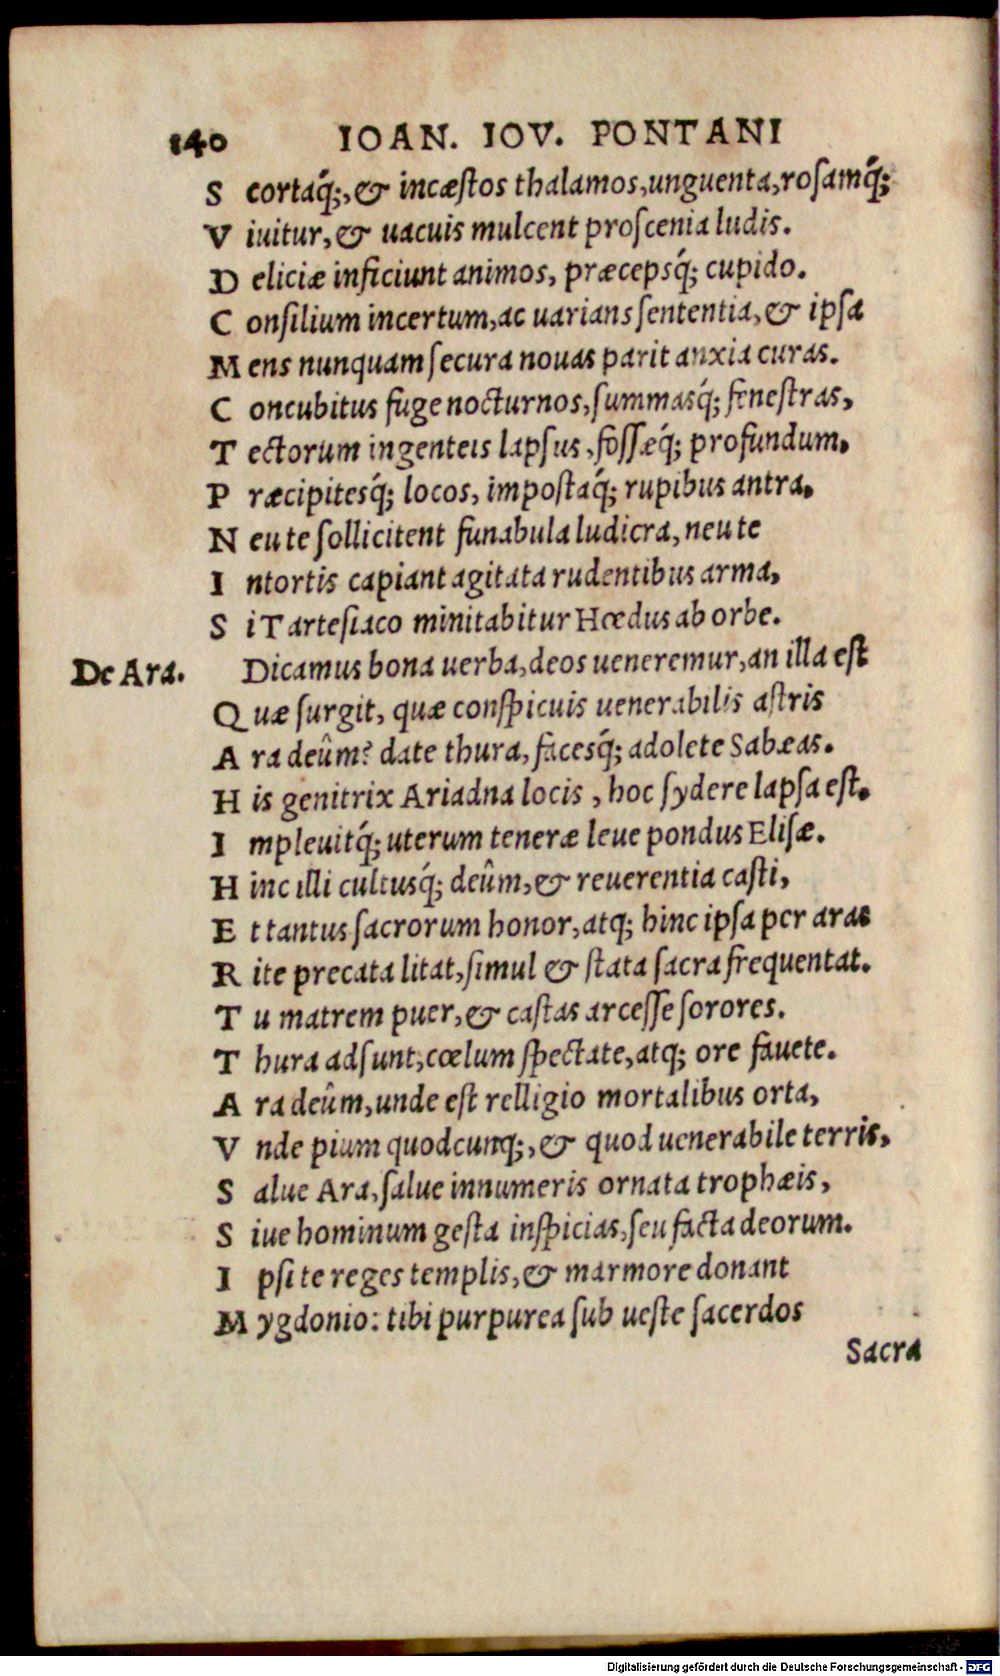 140 IOAN. IOV. PONTANI
S cortaq́;, & incæſtos thalamos, unguenta, roſamq́;
V iuitur, & uacuis mulcent proſcenia ludis.
D eliciæ inficiunt animos, præcepsq́; cupido.
C onſilium incertum, ac uarians ſententia, & ipſa
M ens nunquam ſecura nouas parit anxia curas.
C oncubitus fuge nocturnos, ſummasq́; feneſtras,
T ectorum ingenteis lapſus, foſſæq́; profundum.
P ræcipitesq́; locos, impoſtaq́; rupibus antra.
N eu te ſollicitent funabula ludicra, neu te
I ntortis capiant agitata rudentibus arma,
S i Tarteſiaco minitabitur Hœdus ab orbe.
De Ara. Dicamus bona uerba, deos ueneremur, an illa eſt
Q uæ ſurgit, quæ conſpicuis uenerabilis aſtris
A ra deûm? date thura, facesq́; adolete Sabæas.
H is genitrix Ariadna locis, hoc ſydere lapſa eſt.
I mpleuitq́; uterum teneræ leue pondus Eliſæ.
H inc illi cultusq́; deûm, & reuerentia caſti,
E t tantus ſacrorum honor, atq; hinc ipſa per aras
R ite precata litat, ſimul & ſtata ſacra frequentat.
T u matrem puer, & caſtas arceſſe ſorores.
T hura adſunt, cœlum ſpectate, atq; ore fauete.
A ra deûm, unde eſt relligio mortalibus orta,
V nde pium quodcunq;, & quod uenerabile terris,
S alue Ara, ſalue innumeris ornata trophæis,
S iue hominum geſta inſpicias, ſeu facta deorum.
I pſi te reges templis, & marmore donant
M ygdonio: tibi purpurea ſub ueſte ſacerdos
Sacra
Digitalisierung gefördert durch die Deutsche Forschungsgemeinschaft - DFG